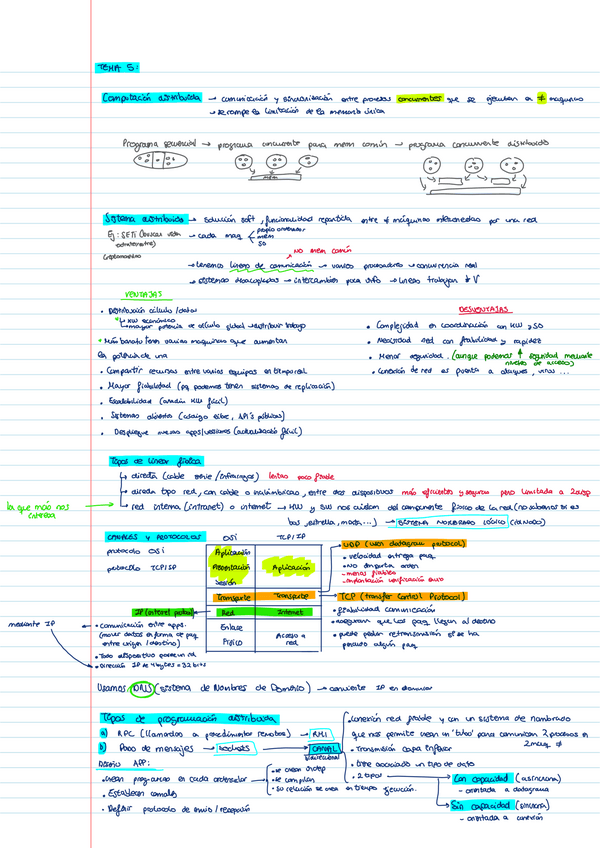 TEMA 5:
Computación distribuida → comunicación y sincronización entre procesos concurrentes que se ejecutan en ≠ maquinas
→ se rompe la limitación de la memoria única
Programa secuencial → programa concurrente para mem común → programa concurrente distribuido
mem
Sistema distribuido → solución soft, funcionalidad repartida entre ≠ máquinas interconectadas por una red
Ej: SETI (buscar vida extraterrestre)
→ cada maq
propio ordenador
mem
SO
→ No mem común
→ tenemos líneas de comunicación → varios procesadores → concurrencia real
→ sistemas desacoplados → intercambian poca info → líneas trabajan ≠ V
VENTAJAS
• Distribución cálculo/datos
↳ HW económico
↳ mayor potencia de cálculo global → distribuir trabajo
• Más barato tener varias maquinas que aumentar
la potencia de una
• Compartir recursos entre varios equipos en temporal
• Mayor fiabilidad (pq podemos tener sistemas de replicación)
• Escalabilidad (añadir HW fácil)
• Sistemas abiertos (código libre, API's públicas)
• Despliegue nuevas apps/versiones (actualización fácil)
DESVENTAJAS
• Complejidad en coordinación con HW y SO
• Necesidad red con fiabilidad y rapidez
• Menor seguridad. (aunque podemos ↑ seguridad mediante
niveles de acceso)
• Conexión de red es puerta a ataques, virus ...
Tipos de línea física
→ directa (cable serie/infrarrojos) lentas poco fiable
→ directa tipo red, con cable o inalámbricas, entre dos dispositivos más eficientes y seguras pero limitada a 2 disp
la que más nos interesa
→ red interna (intranet) o internet → HW y SW nos cuidan del componente físico de la red (no sabemos si es
bus, estrella, mixta...) → SISTEMA NOMBRADO LÓGICO
CANALES Y PROTOCOLOS
protocolo OSI
protocolo TCP/IP
OSI TCP/IP
Aplicación
Presentación Aplicación
Sesión
Transporte Transporte
Red Internet
Enlace
Físico Acceso a red
UDP (user datagram protocol)
• velocidad entrega paq
• NO importa orden
- menos fiables
TCP (transfer Control Protocol)
• fiabilidad comunicación
• aseguran que los paq llegan al destino
• puede pedir retransmisión si se ha
perdido algún paq
IP (internet protocol)
mediante IP
• comunicación entre apps.
(mover datos en forma de paq
entre origen/destino)
• Todo dispositivo posee un id
• Dirección IP de 4 bytes = 32 bits
Usamos DNS (sistema de Nombres de Dominio) → convierte IP en dominio
Tipos de programación distribuida
a) RPC (llamadas a procedimiento remotos) → RMI
b) Paso de mensajes → sockets → CANAL
bidireccional
• Conexión red fiable y con un sistema de nombrado
que nos permite crear un 'tubo' para comunicar 2 procesos en
2 maq ≠
• Transmisión capa inferior
• tiene asociado un tipo de dato
• 2 tipos
→ Con capacidad (asíncrona)
- orientada a datagrama
→ Sin capacidad (síncrona)
- orientada a conexión
Diseño APP:
• Crean programas en cada ordenador
• se compilan
• su relación se crea en tiempo ejecución.
• Establecen canales
• Definir protocolo de envío/recepción